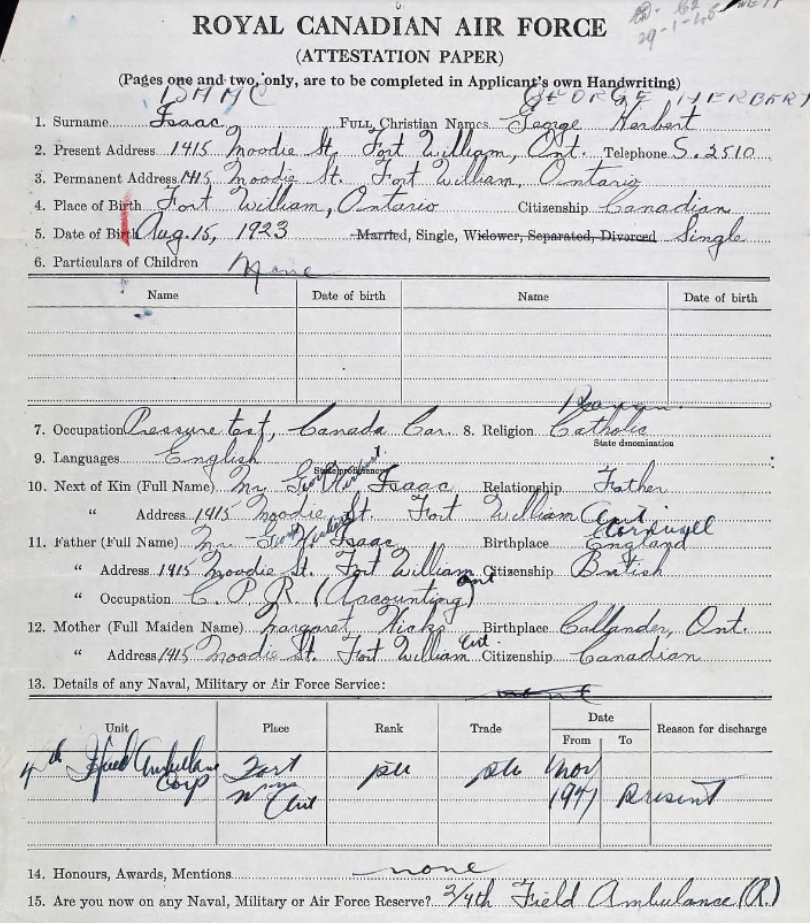 29-1-45
ROYAL CANADIAN AIR FORCE
(ATTESTATION PAPER)
(Pages one and two, only, are to be completed in Applicant's own Handwriting)
ISAAC GEORGE HERBERT
1. Surname Isaac FULL Christian Names George Herbert
2. Present Address 1415 Moodie St. Fort William, Ont. Telephone S. 2510
3. Permanent Address 1415 Moodie St. Fort William, Ontario
4. Place of Birth Fort William, Ontario Citizenship Canadian
5. Date of Birth Aug. 15, 1923 Married, Single, Widower, Separated, Divorced Single
6. Particulars of Children None
Name Date of birth Name Date of birth
Roman
7. Occupation Pressure test, Canada Car. 8. Religion Catholic
State denomination
9. Languages English
State proficiency
10. Next of Kin (Full Name) Mr. George Herbert Isaac Relationship Father
" Address 1415 Moodie St. Fort William Ont
Cornwall
11. Father (Full Name) Mr. George Herbert Isaac Birthplace England
" Address 1415 Moodie St. Fort William Ont Citizenship British
" Occupation C. P. R. (Accounting)
12. Mother (Full Maiden Name) Margaret Hicks Birthplace Callander, Ont.
" Address 1415 Moodie St. Fort William Ont. Citizenship Canadian
13. Details of any Naval, Military or Air Force Service:
Unit Place Rank Trade Date Reason for discharge
From To
4th Field Ambulance Fort pte pte Nov
Corp Wm Ont 1941 present
14. Honours, Awards, Mentions none
15. Are you now on any Naval, Military or Air Force Reserve? 2/4th Field Ambulance (R.)